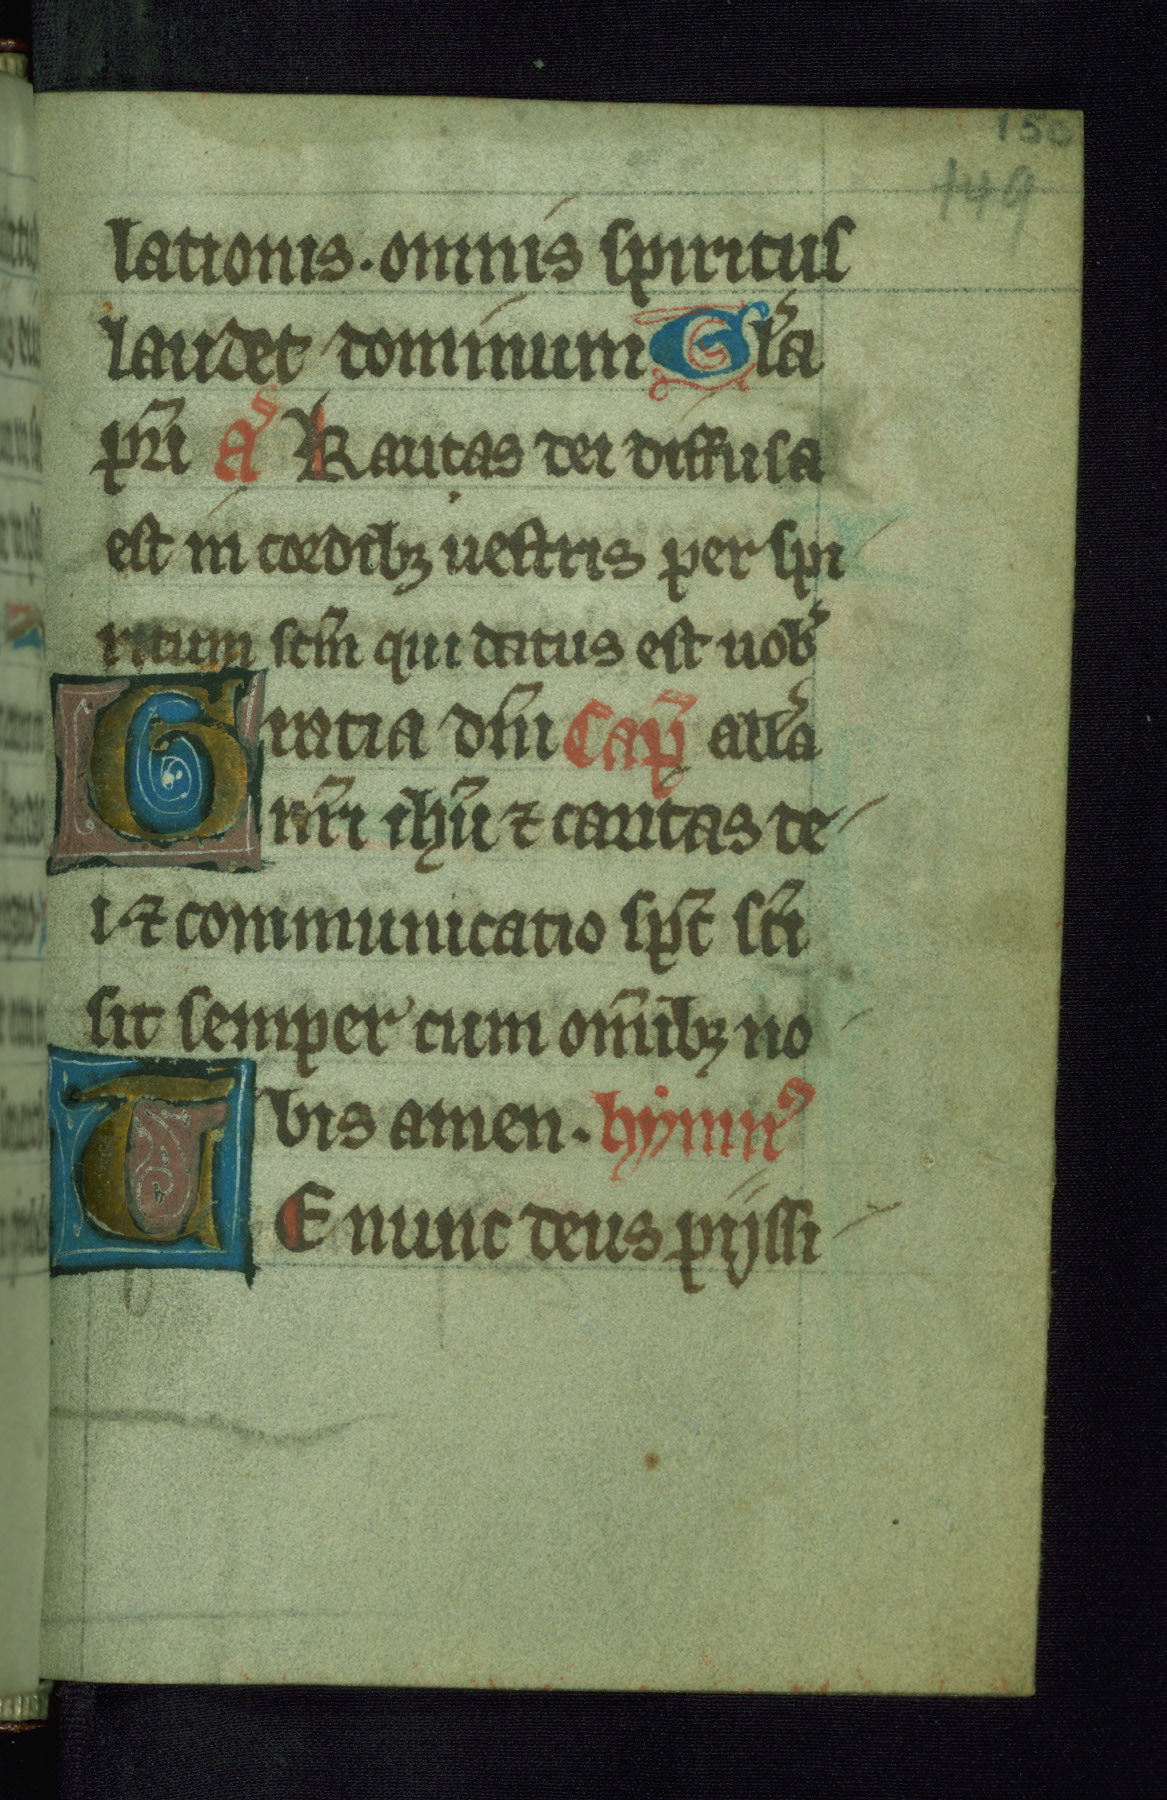 150
149
lationis. omnis spiritus
laudet dominum Gl'a
pr̃i a' Karitas dei diffusa
est in cordibꝫ uestris per spi
ritum sc̃m qui datus est uob'
Gratia dñi Cap̃ all'a
nr̃i ihũ ⁊ caritas de
i ⁊ communicatio sp̃c sc̃i
sit semper cum om̃ibꝫ no
bis amen. hymn'
UE nunc deus pijssi